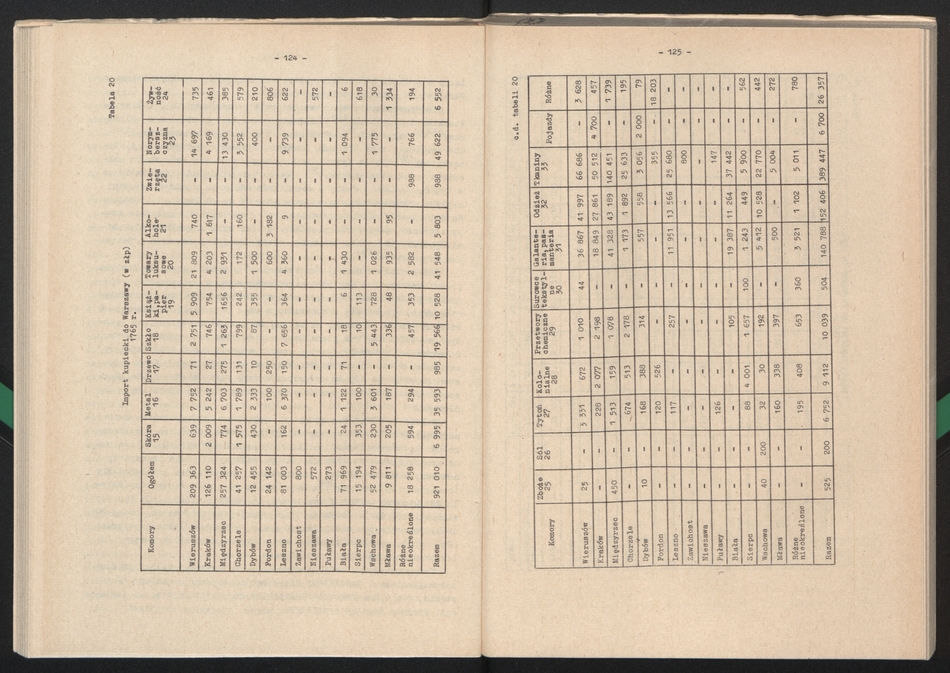 - 124 -
Tabela 20
Import kupiecki do Warszawy (w złp)
1765 r.
Komory Ogółem Skóra 15 Metal 16 Drzewo 17 Szkło 18 Książki, papier 19 Towary luksusowe 20 Alkohole 21 Zwierzęta 22 Norymberszczyzna 23 Żywność 24
Wieruszów 209 363 639 7 752 71 2 751 5 909 21 809 740 - 14 697 735
Kraków 126 110 2 009 5 242 27 746 754 4 203 1 617 - 4 169 461
Międzyrzec 257 324 774 6 703 275 1 263 1656 2 931 - - 13 430 385
Chorzele 41 257 1 575 1 789 131 799 242 172 160 - 3 552 579
Dybów 12 455 430 2 333 10 87 355 1 500 - - 400 210
Fordon 24 142 - 100 250 - - 600 3 182 - - 806
Leszno 81 003 162 6 370 150 7 656 364 4 360 9 - 9 739 622
Zawichost 800 - - - - - - - - - -
Nieszawa 572 - - - - - - - - - 572
Puławy 273 - - - - - - - - - -
Biała 71 969 24 1 122 71 18 6 1 430 - - 1 094 6
Sierpc 15 194 353 100 - 10 113 - - - - 618
Wschowa 52 479 230 3 601 - 5 443 728 1 026 - - 1 775 30
Mława 9 811 205 187 - 336 48 935 95 - - 1 334
Różne nieokreślone 18 258 594 294 - 457 353 2 582 - 988 766 194
Razem 921 010 6 995 35 593 985 19 566 10 528 41 548 5 803 988 49 622 6 552
- 125 -
c.d. tabeli 20
Komory Zboże 25 Sól 26 Tytoń 27 Kolonialne 28 Przetwory chemiczne 29 Surowce tekstylne 30 Galanteria, pasmanteria 31 Odzież 32 Tkaniny 33 Pojazdy Różne
Wieruszów 25 - 3 331 672 1 010 44 36 867 41 997 66 686 - 3 628
Kraków - - 228 2 077 2 198 - 18 849 27 861 50 512 4 700 457
Międzyrzec 450 - 1 513 159 1 078 - 41 328 43 189 140 451 - 1 739
Chorzele - - 674 513 2 178 - 1 173 1 892 25 633 - 195
Dybów 10 - 168 388 314 - 557 558 3 056 2 000 79
Fordon - - 120 526 - - - - 355 - 18 203
Leszno - - 117 - 257 - 11 951 13 566 25 680 - -
Zawichost - - - - - - - - 800 - -
Nieszawa - - - - - - - - - - -
Puławy - - 126 - - - - - 147 - -
Biała - - - - 105 - 19 387 11 264 37 442 - -
Sierpc - - 88 4 001 1 657 100 1 243 449 5 900 - 562
Wschowa 40 200 32 30 192 - 5 412 10 528 22 770 - 442
Mława - - 160 338 397 - 500 - 5 004 - 272
Różne nieokreślone - - 195 408 653 360 3 521 1 102 5 011 - 780
Razem 525 200 6 752 9 112 10 039 504 140 788 152 406 389 447 6 700 26 357